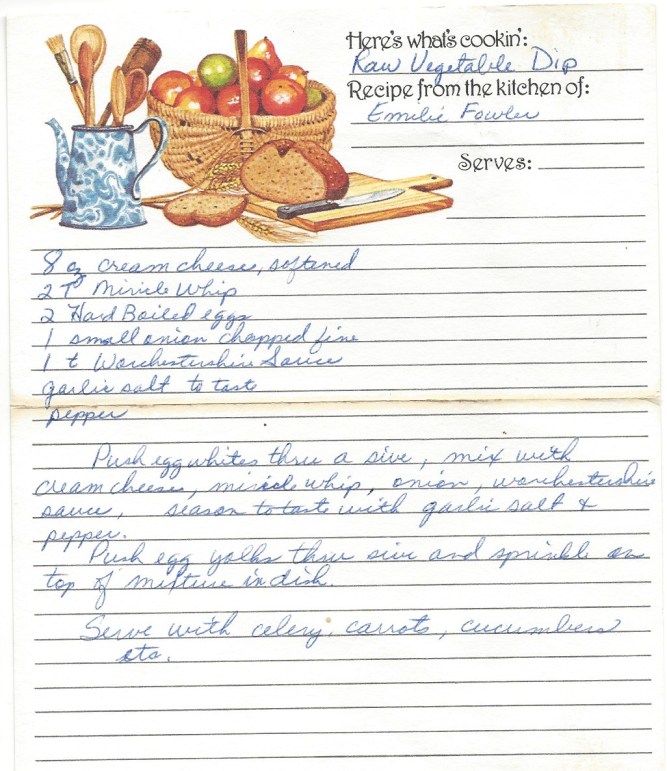 Here's what's cookin':
Raw Vegetable Dip
Recipe from the kitchen of:
Emilie Fowler
Serves:
8 oz cream cheese, softened
2 T Miricle Whip
2 Hard Boiled eggs
1 small onion chopped fine
1 t Worchestershire Sauce
garlic salt to taste
pepper
Push egg whites thru a sive, mix with
cream cheese, miricle whip, onion, worchestershire
sauce, season to taste with garlic salt &
pepper.
Push egg yolks thru sive and sprinkle on
top of mixture in dish.
Serve with celery, carrots, cucumbers
etc.